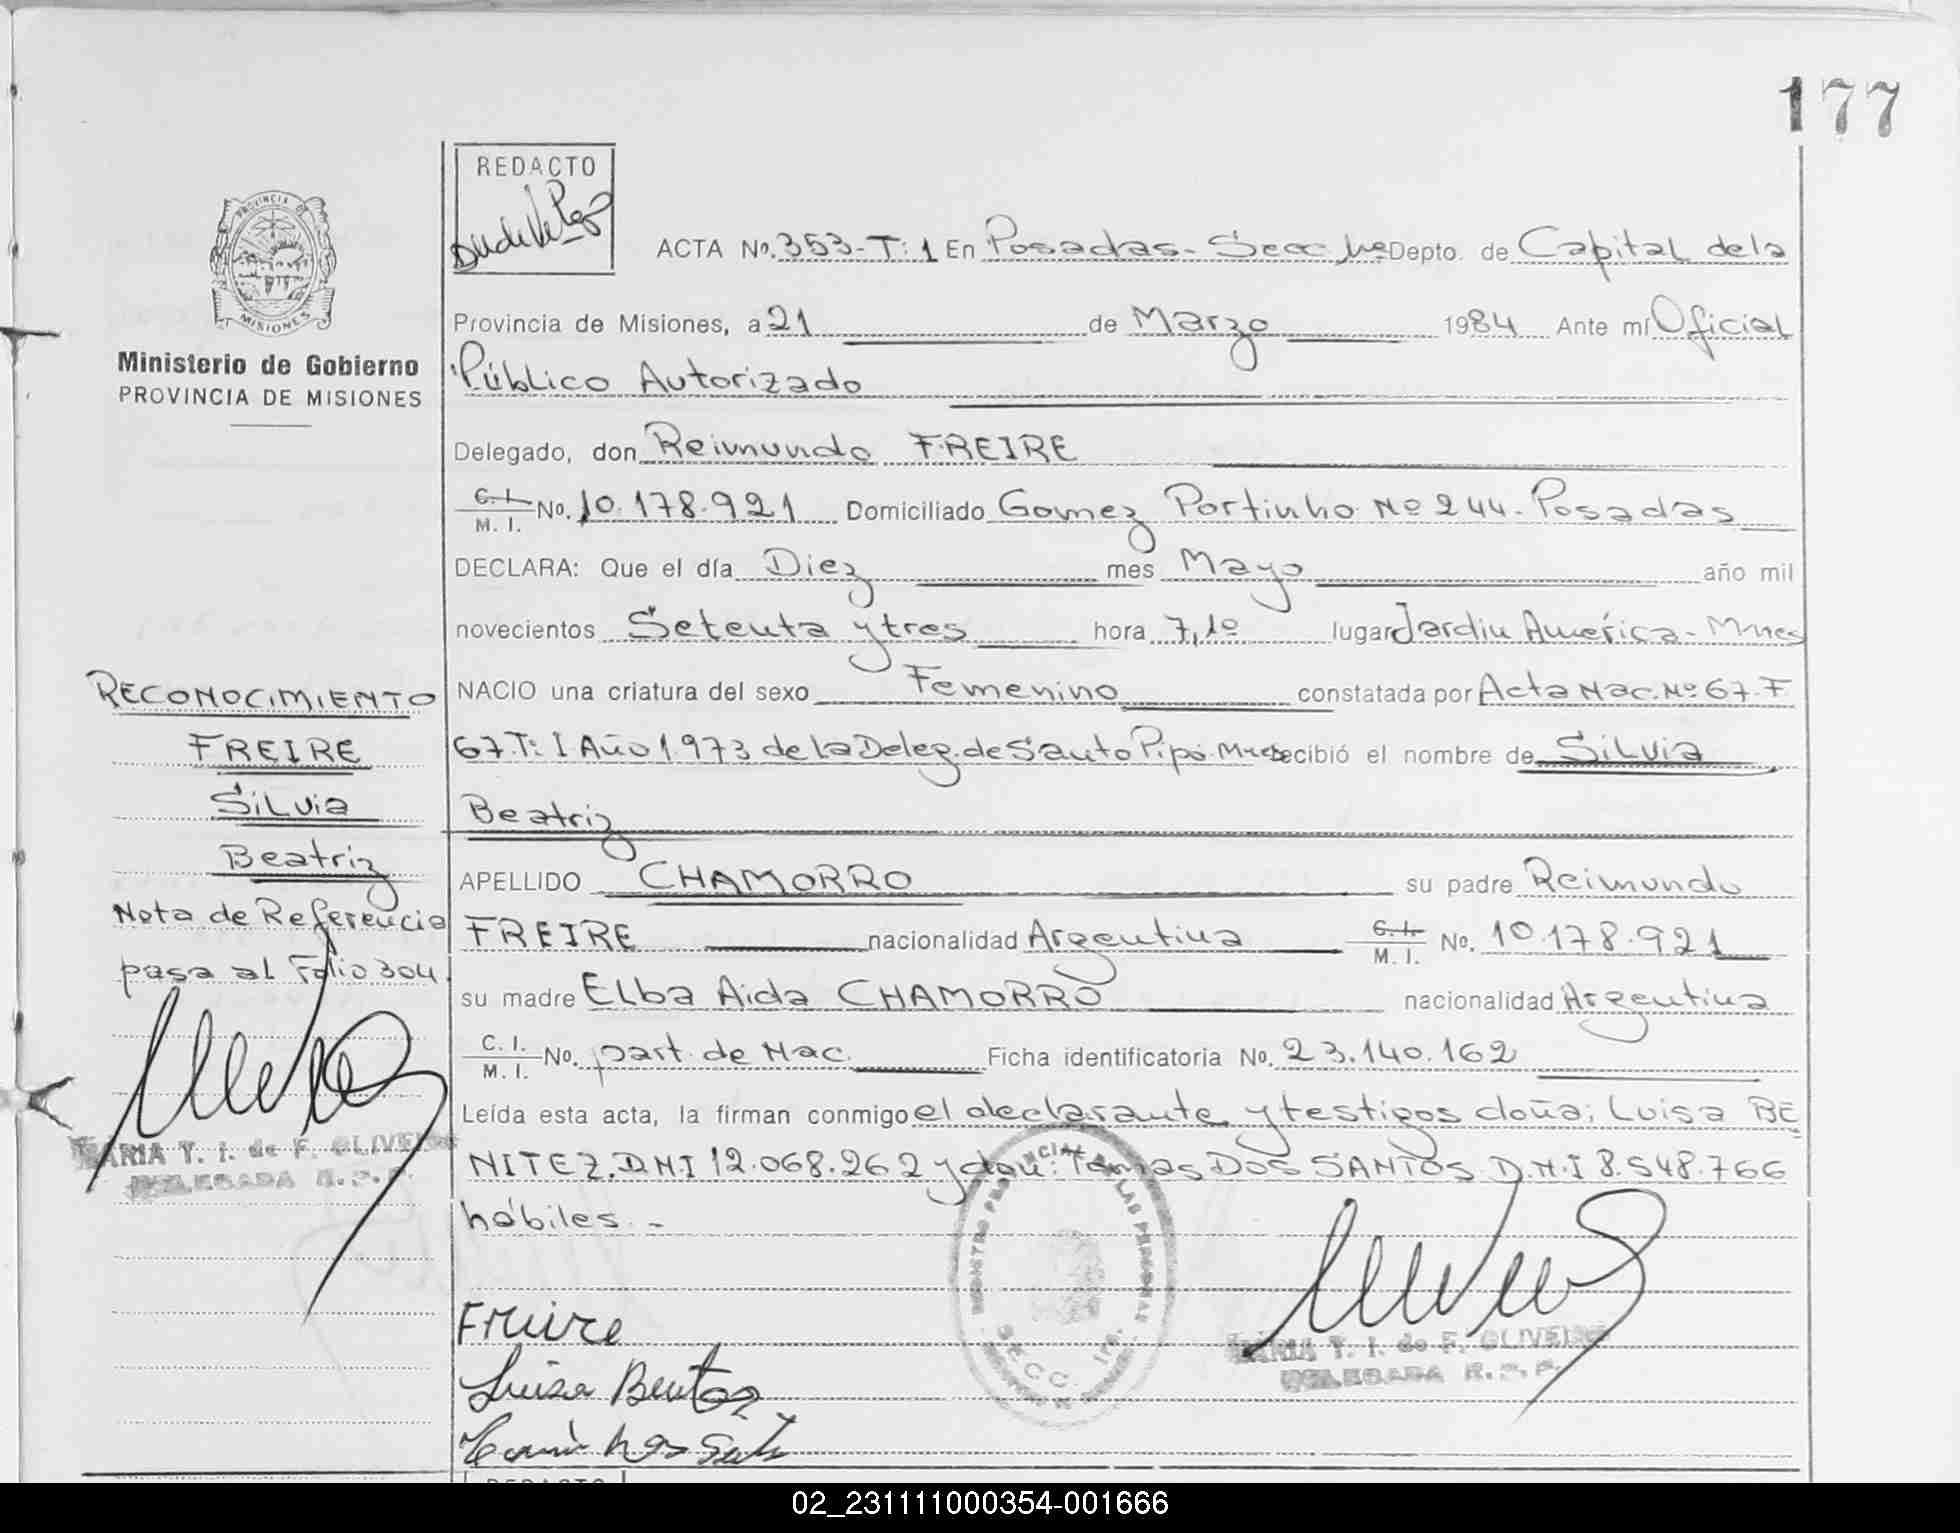 177
REDACTO
PROVINCIA DE
MISIONES
Ministerio de Gobierno
PROVINCIA DE MISIONES
ACTA No. 353-T: 1 En Posadas- Secc 1ra Depto. de Capital de la
Provincia de Misiones, a 21 de Marzo 1984 Ante mí Oficial
Público Autorizado
Delegado, don Reimundo FREIRE
C. I.
M. I. No. 10.178.921 Domiciliado Gomez Portinho Nº 244. Posadas
DECLARA: Que el día Diez mes Mayo año mil
novecientos Setenta y tres hora 7,10 lugar Jardin América - Mnes
NACIO una criatura del sexo Femenino constatada por Acta Nac. Nº 67. F
67. T: I Año 1.973 de la Deleg. de Santo Pipó. Mnes recibió el nombre de Silvia
Beatriz
APELLIDO CHAMORRO su padre Reimundo
FREIRE nacionalidad Argentina C. I.
M. I. No. 10.178.921
su madre Elba Aida CHAMORRO nacionalidad Argentina
C. I.
M. I. No. part. de Nac. Ficha identificatoria No. 23.140.162
Leída esta acta, la firman conmigo el declarante y testigos doña: Luisa BE
NITEZ. D.N.I 12.068.262 y don: Tomas DOS SANTOS. D.N.I 8.548.766
hábiles. -
RECONOCIMIENTO
FREIRE
Silvia
Beatriz
Nota de Referencia
pasa al Folio 304.
MARIA T. I. de F. OLIVEIRA
DELEGADA R.P.P.
Freire
Luisa Benitez
REGISTRO PROVINCIAL DE LAS PERSONAS
SECC. 1ra.
MARIA T. I. de F. OLIVEIRA
DELEGADA R.P.P.
REDACTO
02_231111000354-001666